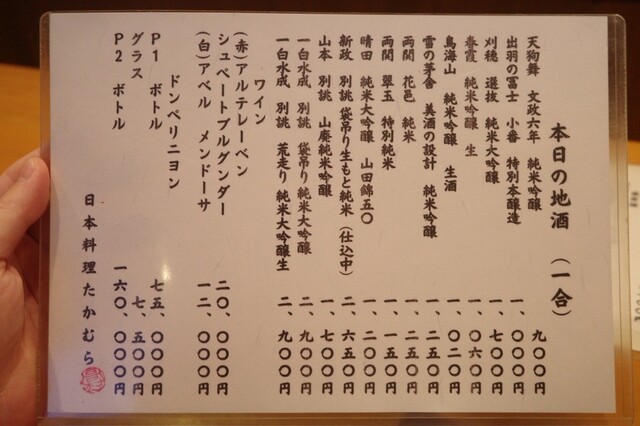 本日の地酒 (一合)
天狗舞 文政六年 純米吟醸 九〇〇円
出羽の冨士 小番 特別本醸造 一、〇〇〇円
刈穂 選抜 純米大吟醸 一、七〇〇円
春霞 純米吟醸 生 一、〇六〇円
鳥海山 純米吟醸 生酒 一、〇二〇円
雪の茅舎 美酒の設計 純米吟醸 一、二五〇円
両関 花邑 純米 一、二五〇円
両関 翠玉 特別純米 一、一五〇円
晴田 純米大吟醸 山田錦五〇 一、二〇〇円
新政 別誂 袋吊り生もと純米 (仕込中) 二、六五〇円
山本 別誂 山廃純米吟醸 一、七〇〇円
一白水成 別誂 袋吊り純米大吟醸 二、九〇〇円
一白水成 別誂 荒走り 純米大吟醸生 二、九〇〇円
ワイン
(赤)アルテレーベン
シュペートブルグンダー 二〇、〇〇〇円
(白)アベル メンドーサ 一二、〇〇〇円
ドンペリニヨン
P1 ボトル 七五、〇〇〇円
グラス 七、五〇〇円
P2 ボトル 一六〇、〇〇〇円
日本料理たかむら